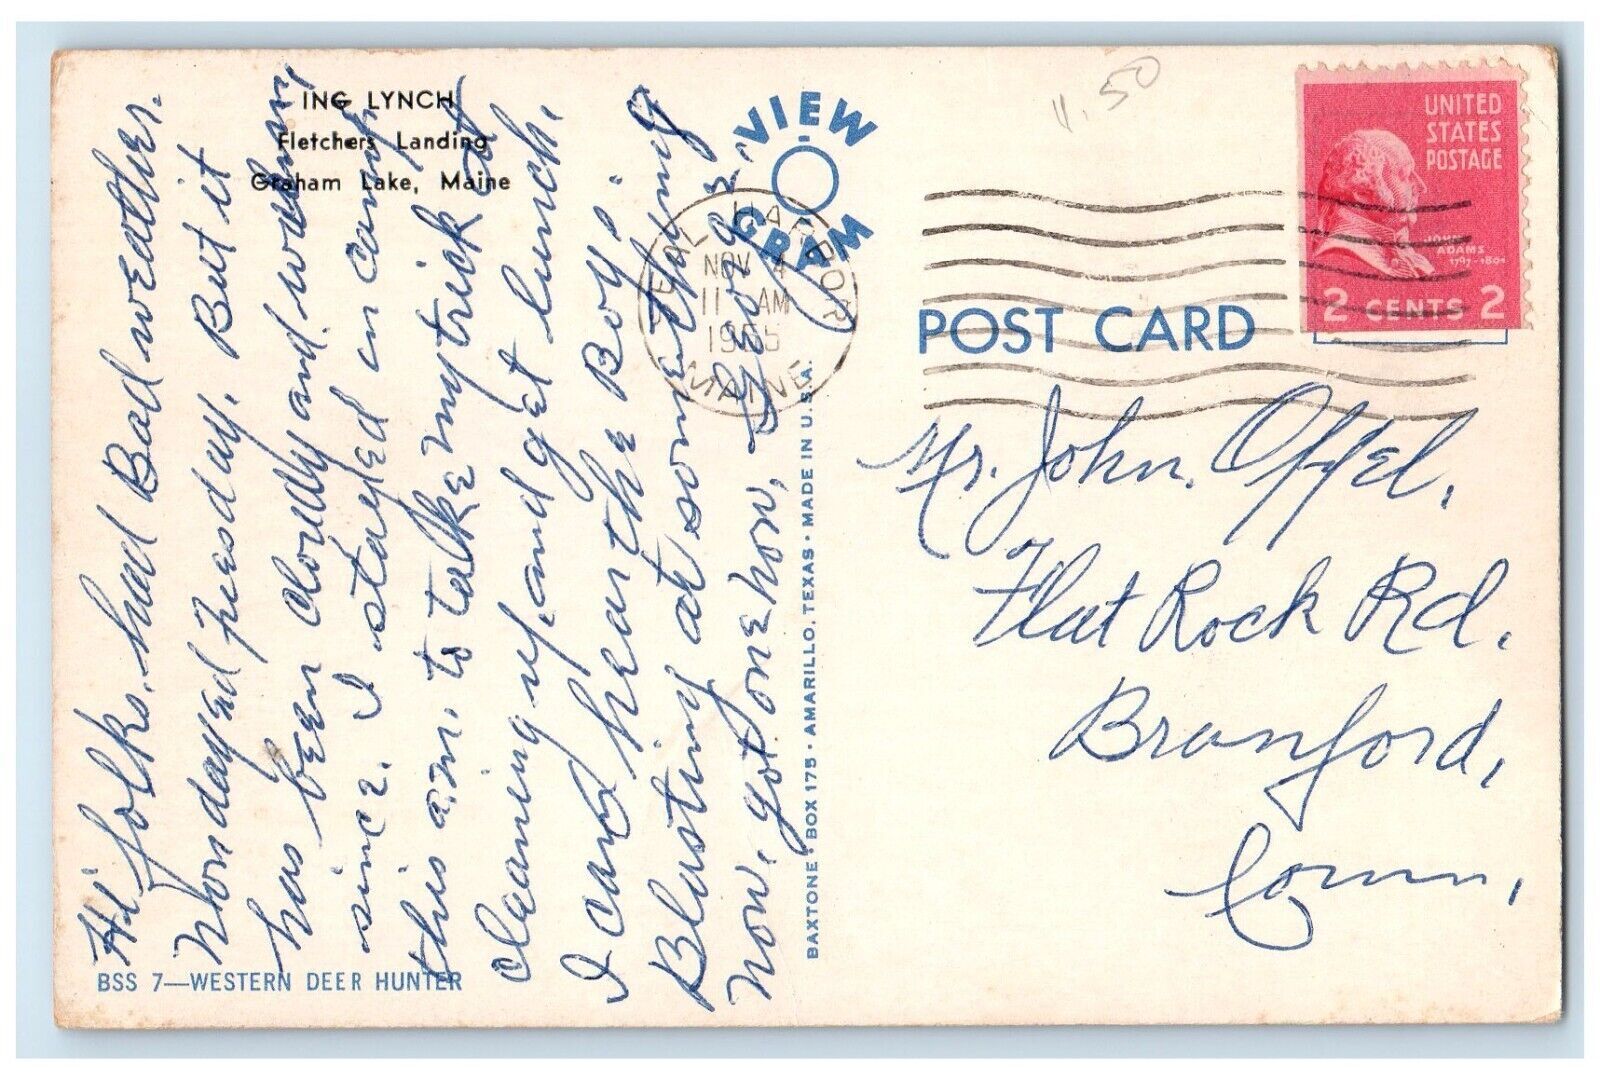 ING LYNCH
Fletchers Landing
Graham Lake, Maine
Hi' folks. had Bad weather.
Monday ed Tuesday. But it
has been cloudy and warm
since. I stayed in camp
this a.m. to take my trick at
cleaning up, and get lunch.
I can hear the Boy's
Blasting at something
now, got one now,
BSS 7—WESTERN DEER HUNTER
BAXTONE • BOX 175 • AMARILLO, TEXAS • MADE IN U.S.A.
"VIEW
GRAM"
NOV 4
11 AM
1955
MAINE
11.50
UNITED
STATES
POSTAGE
JOHN
ADAMS
1797-1801
2 CENTS 2
POST CARD
Mr. John Offel,
Flat Rock Rd.
Branford,
Conn,